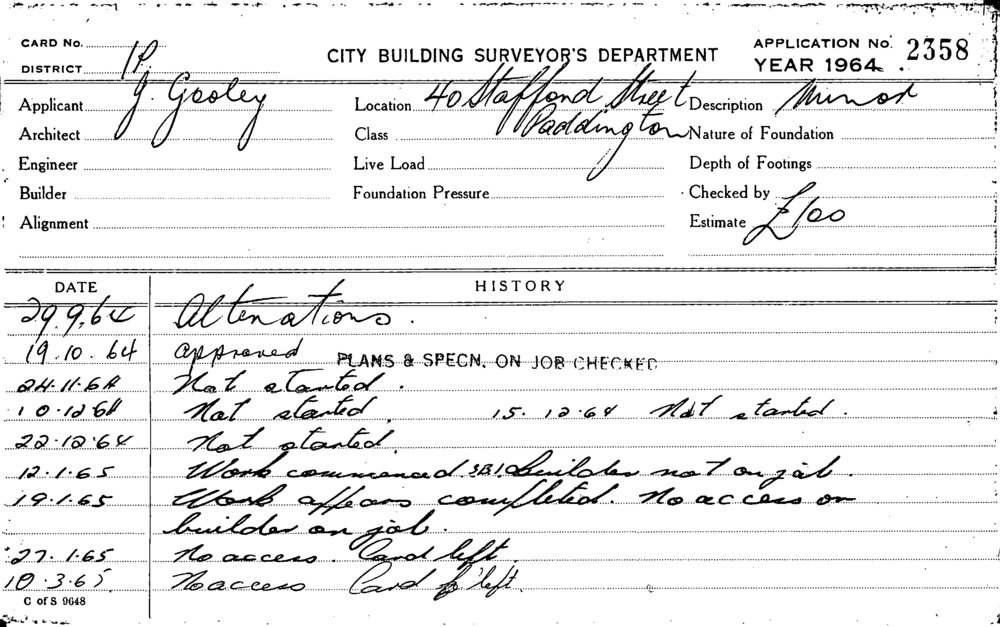 CARD No.
CITY BUILDING SURVEYOR'S DEPARTMENT
APPLICATION No. 2358
DISTRICT 1P.
YEAR 1964
Applicant J. Gooley
Location 40 Stafford Street
Description Minor
Architect
Class Paddington
Nature of Foundation
Engineer
Live Load
Depth of Footings
Builder
Foundation Pressure
Checked by
Alignment
Estimate £100
DATE
HISTORY
29.9.64 Alterations.
19.10.64 approved PLANS & SPECN. ON JOB CHECKED
24.11.64 Not started.
10.12.64 Not started 15.12.64 Not started.
22.12.64 Not started.
12.1.65 Work commenced. Builder not on job.
19.1.65 Work appears completed. No access or
builder on job.
27.1.65 No access. Card left.
10.3.65 No access Card left.
C of S 9648